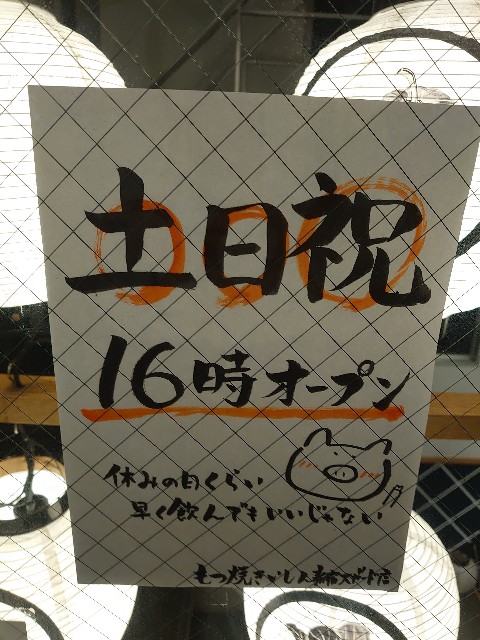 土日祝
16時オープン
休みの日くらい
早く飲んでもいいじゃない
もつ焼き